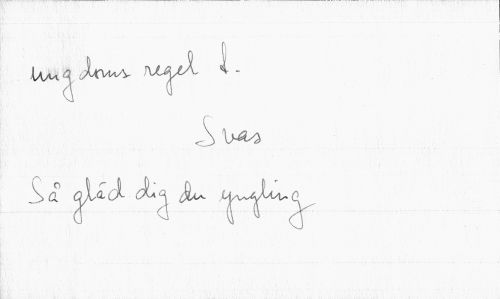 ungdoms regel t.
Svas
Så gläd dig du yngling